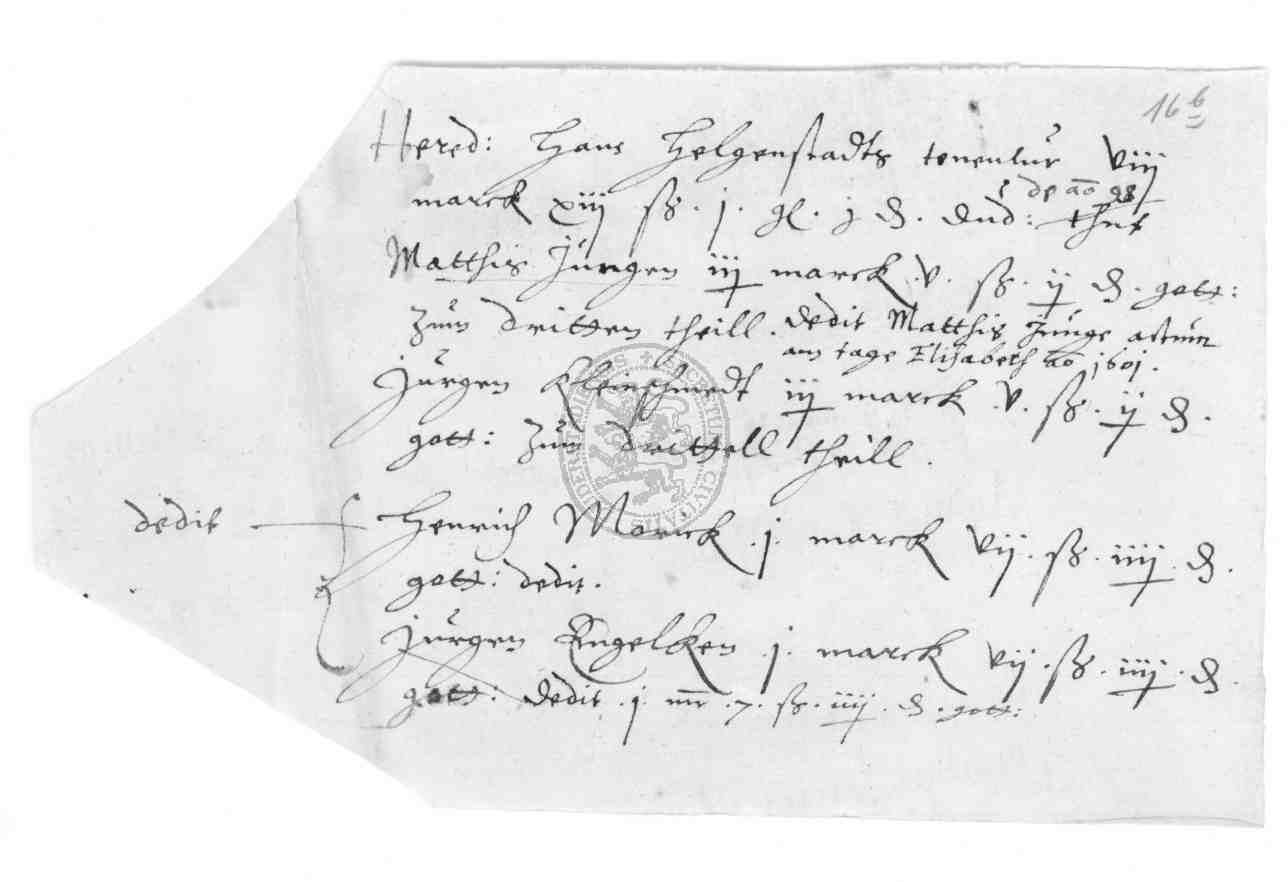 16 b
Hered: Hans Helgenstadts tenentur viij
de ao 98
marck xiij ß. j. gl. j ₰. dnd:
Matthis Jungen iij marck .v. ß. ij ₰. gott:
zum dritten theill. dedit Matthis Junge actum
am tage Elisabeth ao 1601.
Jurgen Kleinschmedt iij marck .v. ß. ij ₰.
gott: zum drittell theill.
dedit Henrich Marick .j. marck vij. ß. iiij. ₰.
gott: dedit.
Jurgen Engelken .j. marck vij. ß. iiij. ₰.
gott: dedit .j. mr .7. ß. iiij. ₰. gott: